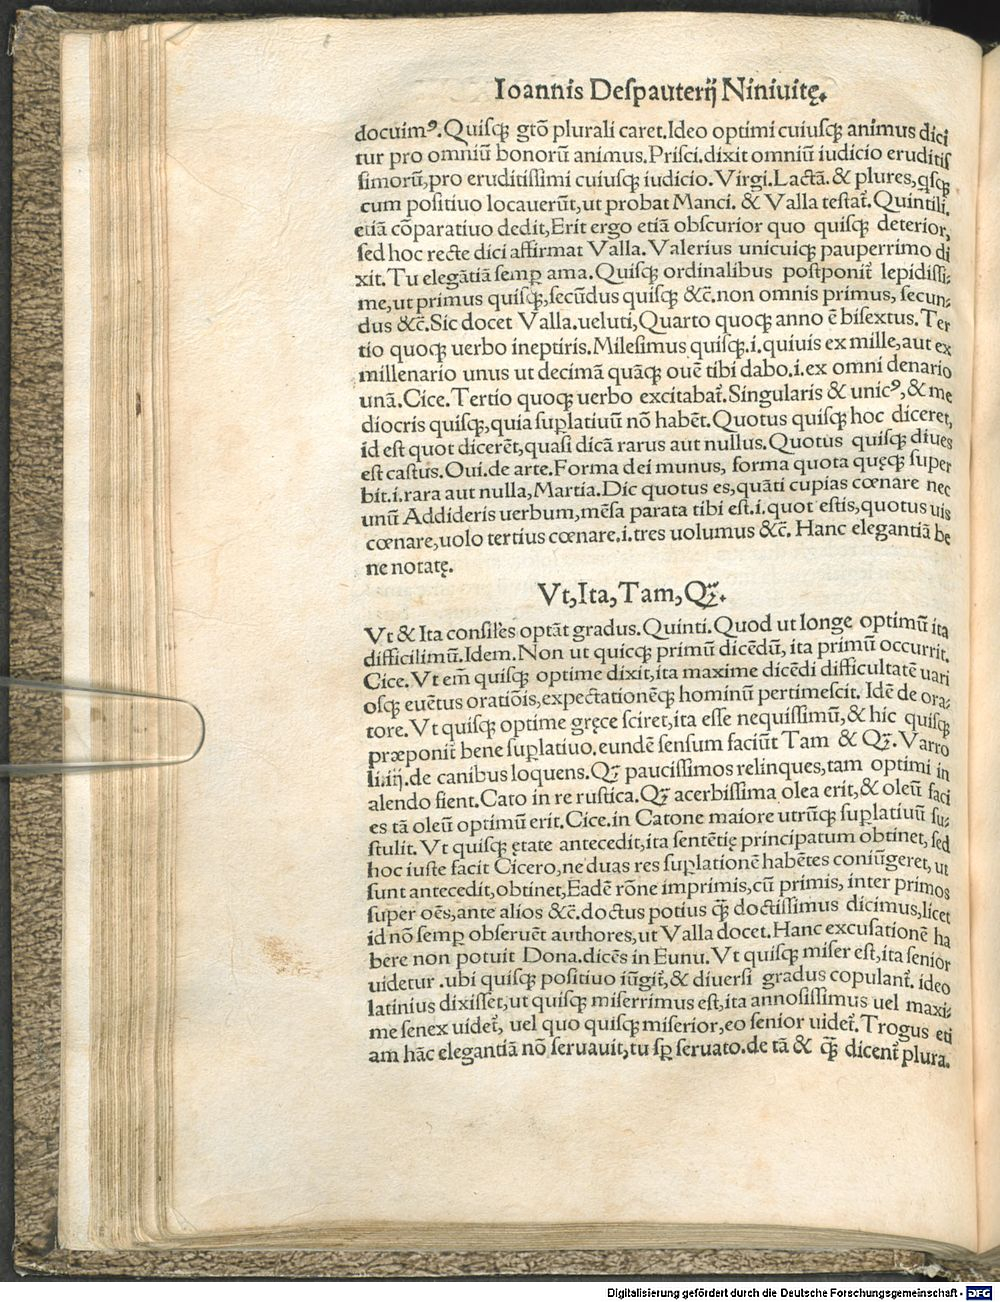 Ioannis Deſpauterij Niniuitę.
docuimꝰ. Quiſqꝫ gtō plurali caret. Ideo optimi cuiuſqꝫ animus dici
tur pro omniū bonorū animus. Priſci. dixit omniū iudicio eruditiſ
ſimorū, pro eruditiſſimi cuiuſqꝫ iudicio. Virgi. Lactā. & plures, qſqꝫ
cum poſitiuo locauerūt, ut ꝓbat Manci. & Valla teſtat᷑. Quintili.
etiā cōparatiuo dedit, Erit ergo etiā obſcurior quo quiſqꝫ deterior,
ſed hoc recte dici affirmat Valla. Valerius unicuiqꝫ pauperrimo di
xit. Tu elegātiā ſemꝑ ama. Quiſqꝫ ordinalibus poſtponit᷑ lepidiſſi-
me, ut primus quiſqꝫ, ſecūdus quiſqꝫ &c̄. non omnis primus, ſecun-
dus &c̄. Sic docet Valla. ueluti, Quarto quoqꝫ anno ē biſextus. Ter
tio quoqꝫ uerbo ineptiris. Mileſimus quiſqꝫ .i. quiuis ex mille, aut ex
millenario unus ut decimā quāqꝫ ouē tibi dabo .i. ex omni denario
unā. Cice. Tertio quoqꝫ uerbo excitabat᷑. Singularis & unicꝰ, & me
diocris quiſqꝫ, quia ſuꝑlatiuū nō habēt. Quotus quiſqꝫ hoc diceret,
id eſt quot dicerēt, quaſi dicā rarus aut nullus. Quotus quiſqꝫ diues
eſt caſtus. Oui. de arte. Forma dei munus, forma quota quęqꝫ ſuper
bit .i. rara aut nulla, Martia. Dic quotus es, quāti cupias cœnare nec
unū Addideris uerbum, mēſa parata tibi eſt .i. quot eſtis, quotus uis
cœnare, uolo tertius cœnare .i. tres uolumus &c̄. Hanc elegantiā be
ne notatę.
Vt, Ita, Tam, Qꝫ̄.
Vt & Ita conſiles optāt gradus. Quinti. Quod ut longe optimū ita
difficilimū. Idem. Non ut quicqꝫ primū dicēdū, ita primū occurrit.
Cice. Vt em̄ quiſqꝫ optime dixit, ita maxime dicēdi difficultatē uari
oſqꝫ euētus oratiōis, expectationēqꝫ hominū pertimeſcit. Idē de ora-
tore. Vt quiſqꝫ optime gręce ſciret, ita eſſe nequiſſimū, & hic quiſqꝫ
præponit᷑ bene ſuꝑlatiuo. eundē ſenſum faciūt Tam & Qꝫ̄. Varro
li. iij. de canibus loquens. Qꝫ̄ pauciſſimos relinques, tam optimi in
alendo fient. Cato in re ruſtica. Qꝫ̄ acerbiſſima olea erit, & oleū faci
es tā oleū optimū erit. Cice. in Catone maiore utrūqꝫ ſuꝑlatiuū ſu-
ſtulit. Vt quiſqꝫ ętate antecedit, ita ſentētię principatum obtinet, ſed
hoc iuſte facit Cicero, ne duas res ſuꝑlationē habētes coniūgeret, ut
ſunt antecedit, obtinet, Eadē rōne imprimis, cū primis, inter primos
ſuper oēs, ante alios &c̄. doctus potius q̄ꝫ doctiſſimus dicimus, licet
id nō ſemꝑ obſeruēt authores, ut Valla docet. Hanc excuſationē ha
bere non potuit Dona. dicēs in Eunu. Vt quiſqꝫ miſer eſt, ita ſenior
uidetur. ubi quiſqꝫ poſitiuo iūgit᷑, & diuerſi gradus copulant᷑. ideo
latinius dixiſſet, ut quiſqꝫ miſerrimus eſt, ita annoſiſſimus uel maxi-
me ſenex uidet᷑, uel quo quiſqꝫ miſerior, eo ſenior uidet᷑. Trogus eti
am hāc elegantiā nō ſeruauit, tu ſꝑ ſeruato. de tā & q̄ꝫ dicent᷑ plura.
Digitalisierung gefördert durch die Deutsche Forschungsgemeinschaft - DFG